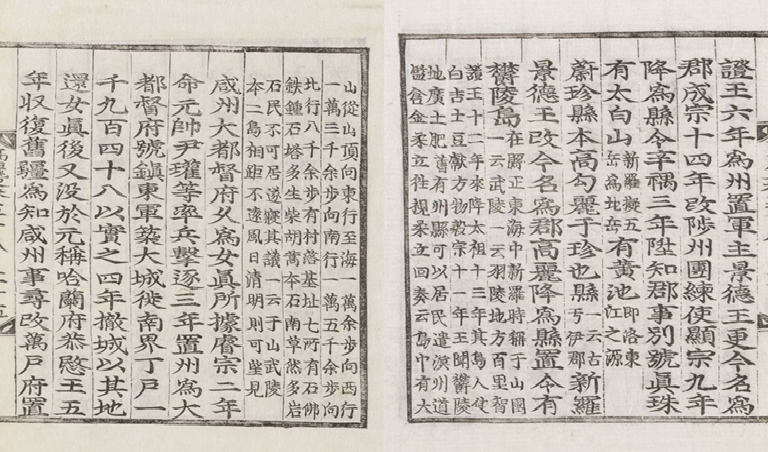 證王六年爲州置軍主景德王更今名爲
郡成宗十四年改陟州團練使顯宗九年
降爲縣令辛禑三年陞知郡事別號眞珠
有太白山新羅擬五岳爲北岳有黃池卽洛東江之源
蔚珍縣本高勾麗于珍也縣一云古亐伊郡新羅
景德王改今名爲郡高麗降爲縣置令有
鬱陵島在縣正東海中新羅時稱于山國
一云武陵一云羽陵地方百里智
證王十二年來降太祖十三年其島人使
白吉士豆獻方物毅宗十一年王聞鬱陵
地廣土肥舊有州縣可以居民遣溟州道
監倉金柔立往視柔立回奏云島中有大
山從山頂向東行至海一萬余步向西行
一萬三千余步向南行一萬五千余步向
北行八千余步有村落基址七所有石佛
鐵鍾石塔多生柴胡蒿本石南草然多岩
石民不可居遂寢其議一云于山武陵
本二島相距不遠風日淸明則可望見
咸州大都督府久爲女眞所據睿宗二年
命元帥尹瓘等率兵擊逐三年置州爲大
都督府號鎭東軍築大城徙南界丁戶一
千九百四十八以實之四年撤城以其地
還女眞後又没於元稱哈蘭府恭愍王五
年収復舊疆爲知咸州事尋改萬戶府置